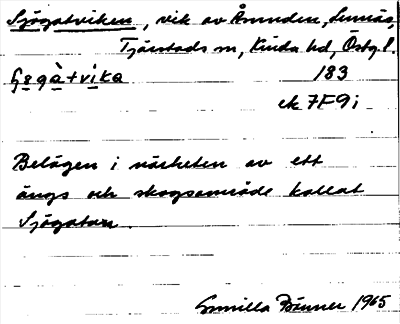 Sjögatviken, vik av Åmunden, Sunnäs,
Tjärstads sn, Kinda hd, Östg l.
183
ek 7F9i
Belägen i närheten av ett
ängs och skogsområde kallat
Sjögatan.
Gunilla Römner 1965